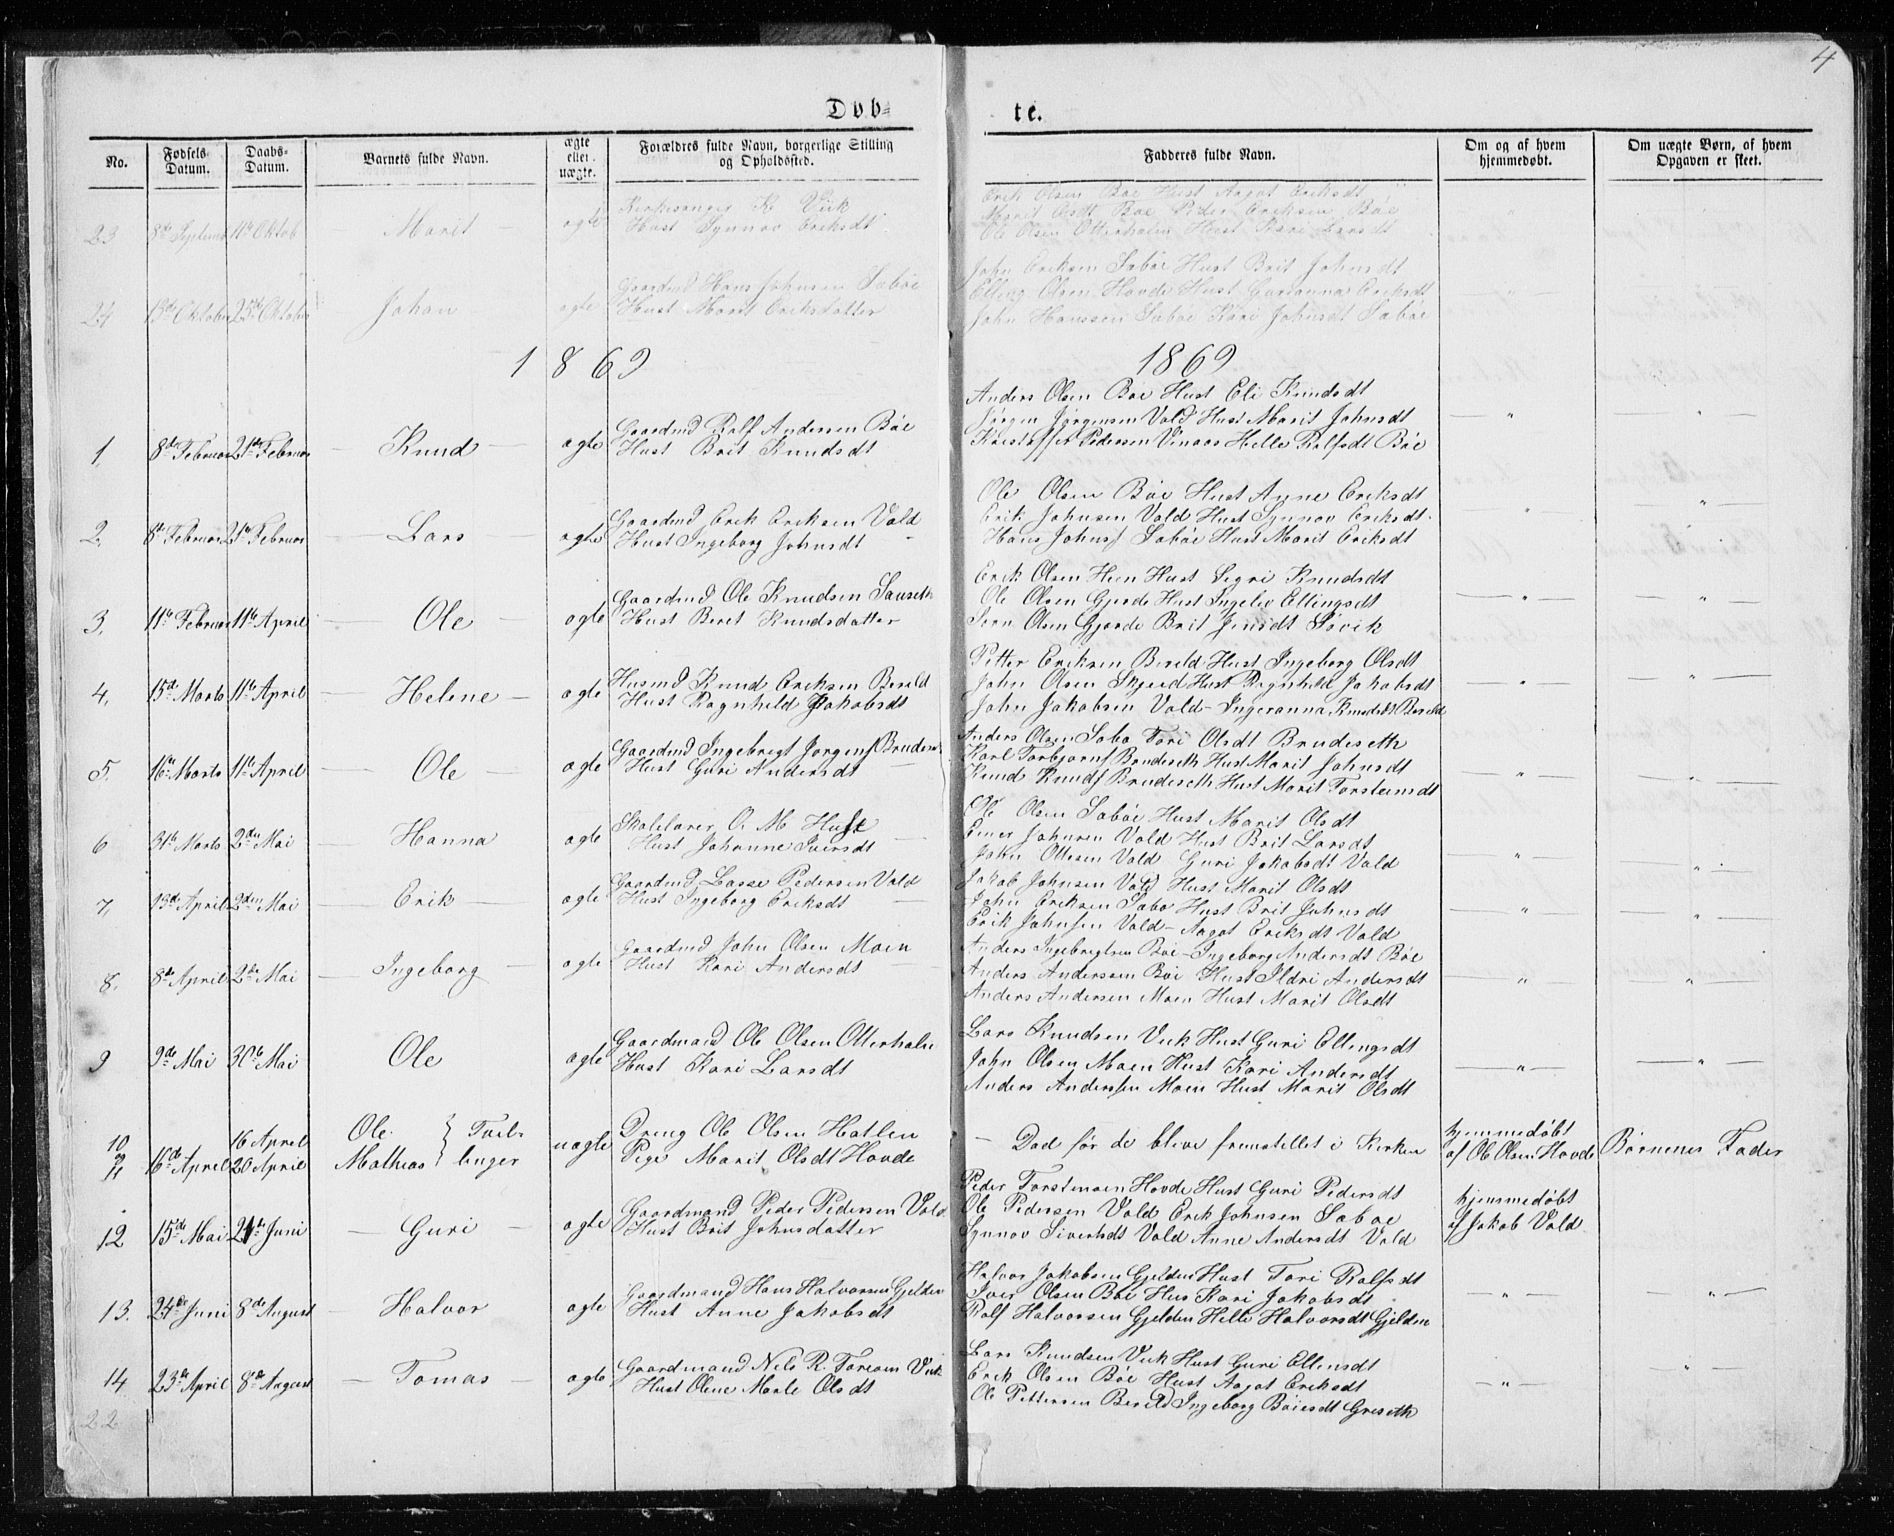 4
Døb- te.
No. Fødsels- Datum. Daabs- Datum. Barnets fulde Navn. ægte eller uægte. Forældres fulde Navn, borgerlige Stilling og Opholdssted. Faddernes fulde Navn. Om og af hvem hjemmedøbt. Om uægte Børn, af hvem Opgaven er skeet.
Kirkesanger K. Viik Erik Olsen Bøe Hust Aagot Eriksdt
23 8de Septemb 11te Oktob Marit ægte Hust Synnøv Eriksdt Bøe Peder Eriksen Bøe
Ole Olsen Otterhalen Hust Kari Larsdt
Gaardmd Hans Johnsen Sæbøe John Eriksen Sæbøe Hust Brit Johnsdt
24 13de Oktober 25de Oktober Johan ægte Hust Marit Eriksdatter Elling Olsen Hovde Hust Gurianna Eriksdt
John Hanssen Sæbøe Kari Johnsdt Sæbøe
1869 1869
Anders Olsen Bøe Hust Eli Knudsdt
Gaardmd Rolf Andersen Bøe Jørgen Jørgensen Vold Hust Marit Johnsdt — " — "
1. 8de Februar 21de Februar — Knud — ægte Hust Brit Knudsdt Kristoffer Pedersen Vinaas Helle Rolfsdt Bøe
Ole Olsen Bøe Hust Anne Eriksdt
Gaardmd Erik Eriksen Vold Erik Johnsen Vold Hust Synnøv Eriksdt " "
2. 8de Februar 21de Februar — Lars — ægte Hust Ingeborg Johnsdt Hans Johns Sæbøe Hust Marit Eriksdt
Erik Olsen Heen Hust Segri Knudsdt
Gaardmd Ole Knudsen Sauseth Ole Olsen Gjerde Hust Ingelev Ellingsdt — " — — " —
3. 11te Februar 11te April — Ole — ægte Hust Beret Knudsdatter Olsen Gjerde Brit Jensdt Søvik
Petter Eriksen Bereld Hust Ingeborg Olsdt
4. 15de Marts 11te April — Helene — ægte Husmd Knud Eriksen Bereld John Olsen Skjeed Hust Ragnhild Jakobsdt — " — — " —
Hust Ragnhild Jakobsdt John Jakobsen Vold - Ingeranna Knudsdt Bereld
Anders Olsen Sæbø Tori Olsdt Brudeseth
Gaardmd Ingebregt Jørgens Brudes Karl Torbjørns Brudeseth Hust Marit Johnsdt
5. 16te Marts 11te April — Ole — ægte Hust Guri Andersdt — Knud Knuds Brudeseth Hust Marit Torsteinsdt " "
Ole Olsen Sæbøe Hust Marit Olsdt
6 31te Marts 2den Mai — Hanna ægte Skolelærer O. M. Huse Einer Johnsen Vold Hust Brit Larsdt
Hust Johanne Iversdt John Ottesen Vold Guri Jakobsdt Vold " "
Gaardmd Lasse Pedersen Vold Jakob Johnsen Vold Hust Marit Olsdt
7. 13de April 2den Mai — Erik — ægte Hust Ingeborg Eriksdt — John Eriksen Sæbø Hust Brit Johnsdt — " — — " —
Erik Johnsen Vold - Aagot Eriksdt Vold
Gaardmd John Olsen Moen Anders Ingebregtsen Bøe - Ingeborg Andersdt Bøe
8. 8de April 2den Mai — Ingeborg ægte Hust Kari Andersdt Anders Anderssen Bøe Hust Ildri Andersdt — " — — " —
Anders Andersen Moen Hust Marit Olsdt
Gaardmand Ole Olsen Otterhalen Lars Knudsen Viik Hust Guri Ellingsdt
9 9de Mai 30te Mai Ole ægte Hust Kari Larsdt John Olsen Moen Hust Kari Andersdt — " — — " —
Anders Andersen Moen Hust Marit Olsdt
10 16 April Ole } Tvil- Dreng Ole Olsen Hatlen hjemmedøbt
og 11 16de April 20 April Mathias } linger uægte Pige Marit Olsdt Hovde — Død før de bleve fremstellet i Kirken af Ole Olsen Hovde Børnenes Fader
Gaardmand Peder Pedersen Vold Peder Torstensen Hovde Hust Guri Pedersdt hjemmedøbt
12 15de Mai 24de Juni — Guri — ægte Hust Brit Johnsdatter Ole Pedersen Vold Erik Johnsen Sæbøe af Jakob Vold
Synnøv Sivertsdt Vold Anne Andersdt Vold
Gaardmand Hans Halvorsen Gjelden Halvor Jakobsen Gjelden Hust Tori Rolfsdt
13. 24de Juni 8de August — Halvor ægte Hust Anne Jakobsdt Iver Olsen Bøe Hus Kari Jakobsdt — " — — " —
Rolf Halvorsen Gjelden Helle Halvorsdt Gjelden
Gaardmand Nels R. Viik Lars Knudsen Viik Hust Guri Ellensdt
14 23de April 8de August — Tomas — ægte Hust Olene Marie Olsdt Erik Olsen Bøe Hust Aagot Eriksdt — " — "
Ole Pettersen Bereld Ingeborg Boiesdt Greseth
22